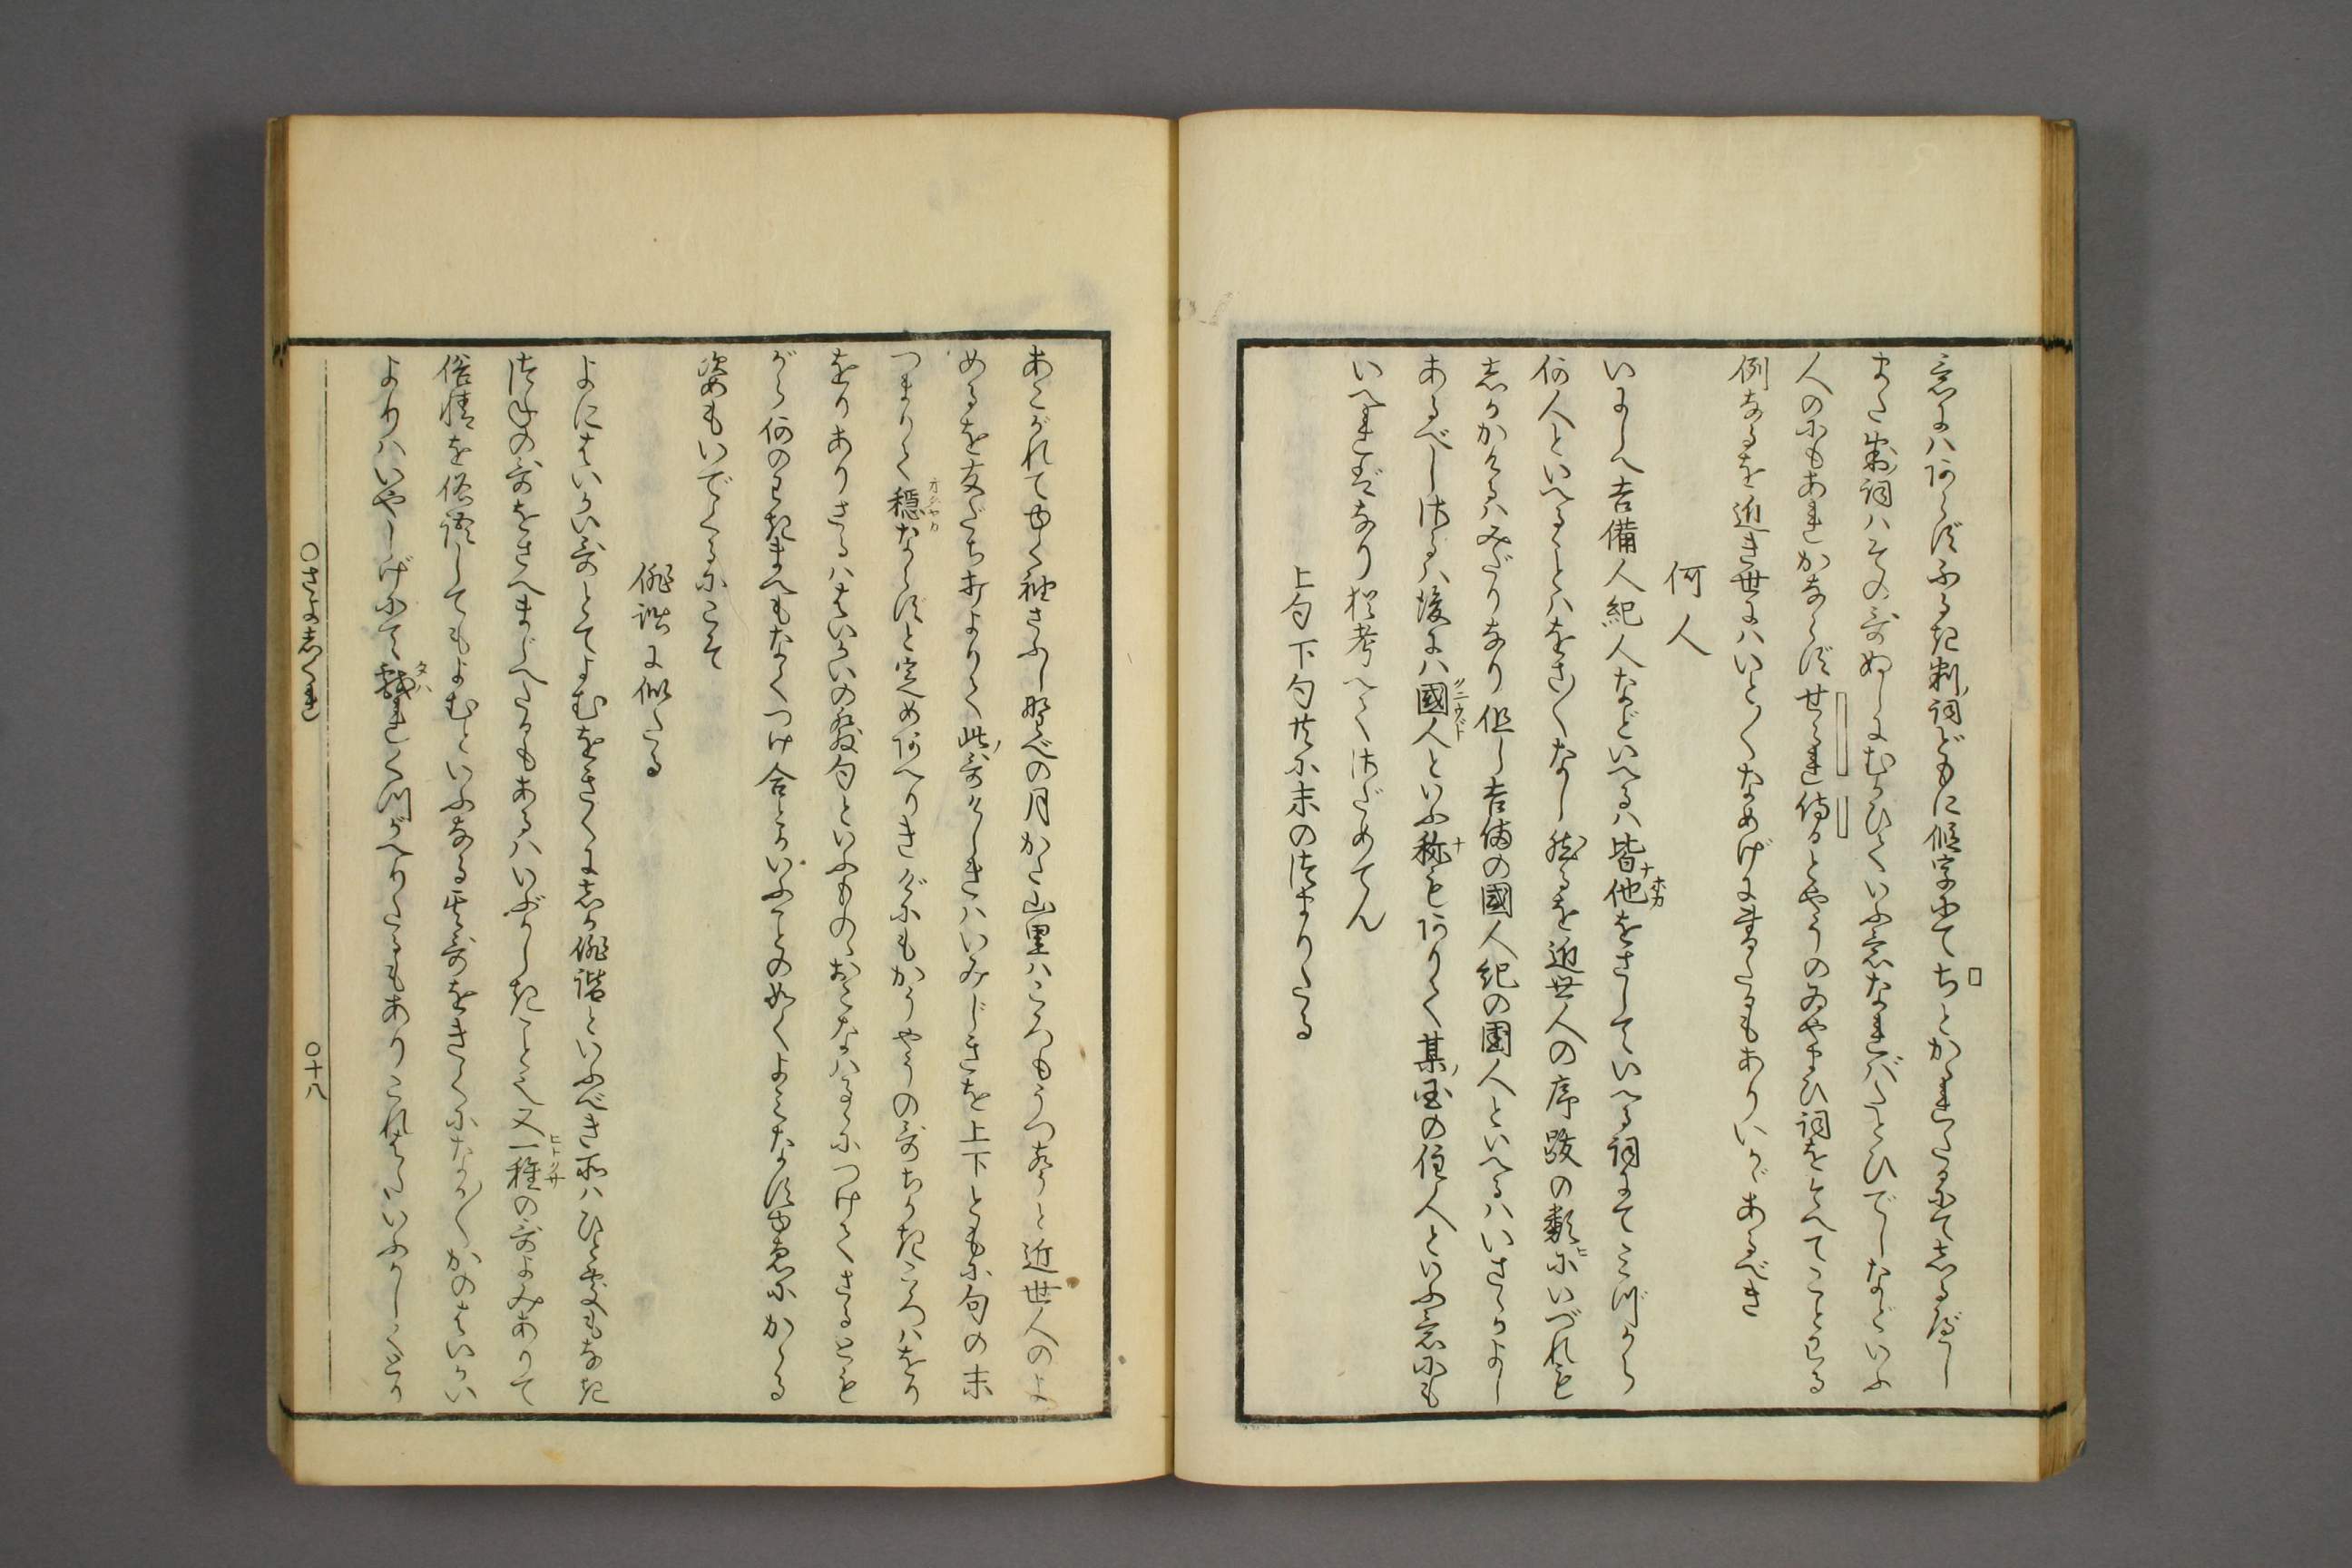 意にハあらずふるき判詞どもに假字にてちとかれたるにてしるべし
また判詞ハその哥ぬしにむかひていふ意なれバたとひでしなどいふ
人のにもあれかならずせられ侍るとやうのゐやまひ詞をそへてことわる
例なるを近き世にハいと〳〵なめげに書るもありいかであるべき
何人
いにしへ吉備人紀人などいへるハ皆他をさしていへる詞にてみづから
何人といへることハをさ〳〵なし然るを近世人の序跋の類にいづれも
しかかけるハみだりなり但し吉備の國人紀の國人といへるハいさゝかよし
あるべしはるハ後にハ國人といふ称もありて某國の住人といふ意にも
いへれバなり猶考へてさだめてん
上句下句共に末のつまりたる
あこがれてゆく袖さふし野べの月かた山里ハころもうつなりと近世人のよ
めるを友だち打よりて此哥けしきハいみじきを上下ともに句の末
つまりて穏ならずと定めあへりきげにもかうやうの哥ちかきころハをり
をりありさるハはいかいの發句といふものゝおこなハるゝにつけてさるこゝろ
がら何のわきまへもなくつけ合とかいふことの如くよみなすゆゑにかゝる
姿もいでくるにこそ
俳諧に似たる
よにはいかい哥とてよむをきくにしか俳諧といふべき所ハひとふしもなき
つねの哥をさへまじへたるもあるハいぶかしきことゝ又一種の哥よみありて
俗情を俗語してもよむといふなる其哥をきくになか〳〵かのはいかい
よりハいやしげにて戯れくつがへりたるもありこれはたいふかしくとり
○さよしぐれ
○十八